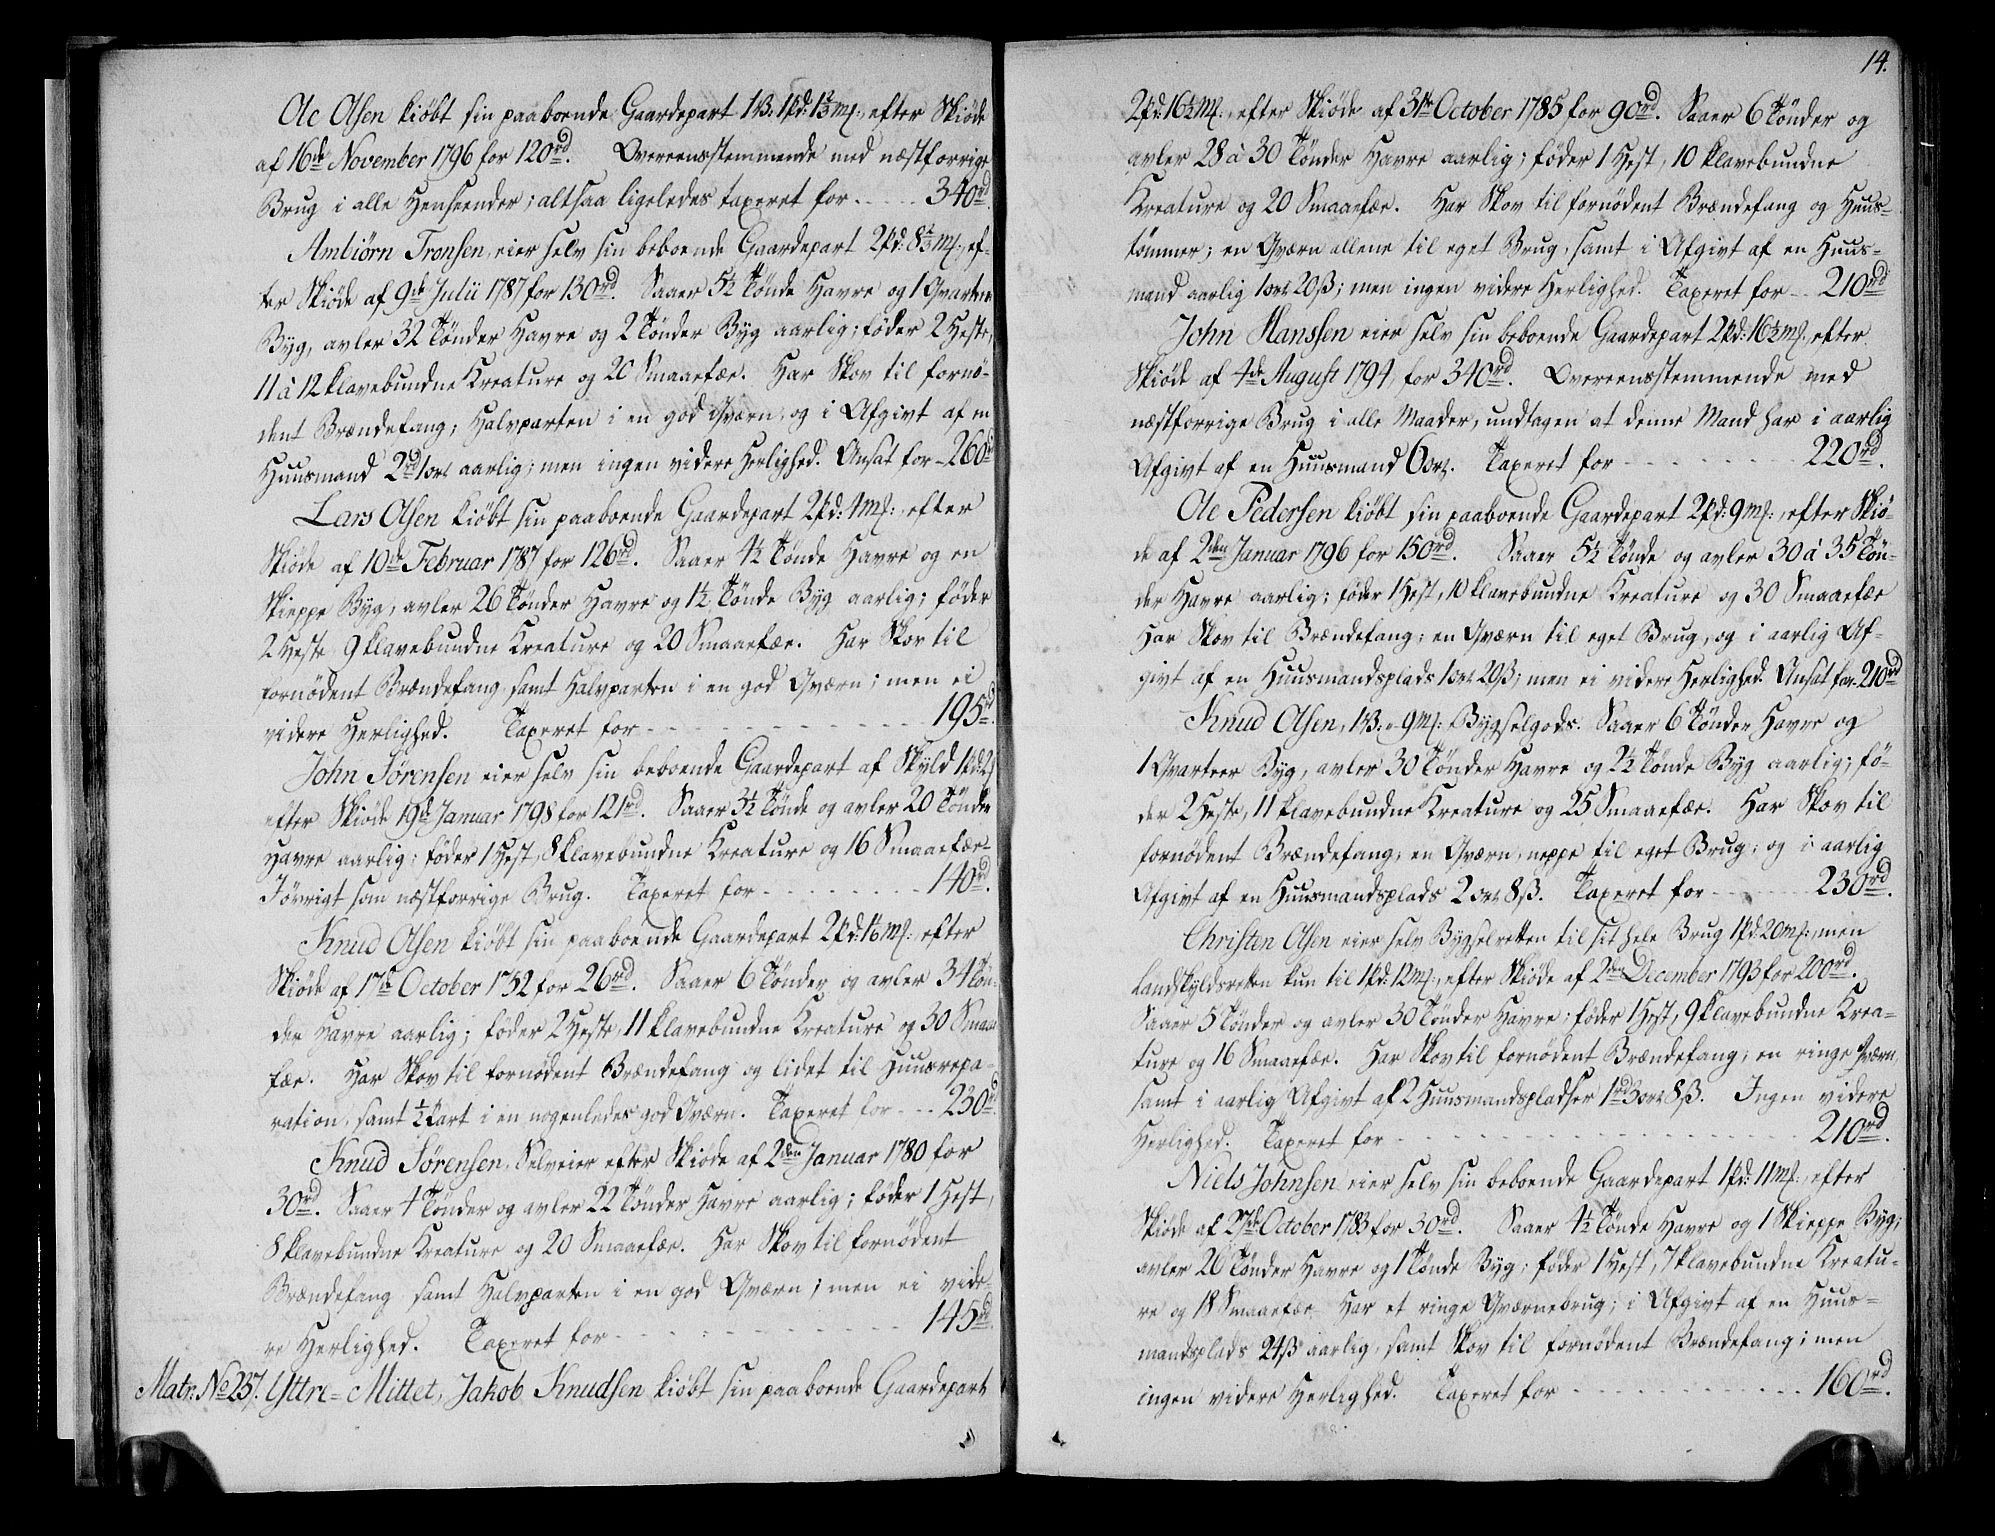 Ole Olsen kiöbt sin paaboende Gaardepart 1B: 1pd: 13/2 mk:, efter Skiöde
af 16de November 1796 for 120rd. Overeensstemmende med næstforrige
Brug i alle Henseender; altsaa ligeledes taxeret for ..... 340rd.
Ambiörn Tronsen, eier selv sin beboende Gaardepart 2pd: 8½mk:, ef-
ter Skiöde af 9de Julii 1787 for 130rd. Saaer 5½ Tönde Havre og 1 Qvarteer
Byg, avler 32 Tönder Havre og 2 Tönder Byg aarlig; föder 2 Heste,
11 à 12 klavebundne Kreature og 20 Smaaefæe. Har Skov til fornö-
dent Brændefang, Halvparten i en god Qværn, og i Afgivt af en
Huusmand 2rd 1ort aarlig; men ingen videre Herlighed. Ansat for - 260rd
Lars Olsen kiöbt sin paaboende Gaardepart 2pd: 4mk:, efter
Skiöde af 10de Februar 1787 for 126rd. Saaer 4½ Tönde Havre og en
Skieppe Byg, avler 26 Tönder Havre og 1½ Tönde Byg aarlig; föder
2 Heste 9 klavebundne Kreature og 20 Smaaefæe. Har Skov til
fornödent Brændefang, samt Halvparten i en god Qværn; men ei
videre Herlighed. Taxeret for - - - - - - - - 195rd.
John Sörensen eier selv sin beboende Gaardepart af Skyld 1pd:
efter Skiöde 19de Januar 1798 for 121rd. Saaer 3½ Tönde og avler 20 Tönder
Havre aarlig; föder 1 Hest, 8 klavebundne Kreature og 16 Smaaefæe-
Iövrigt som næstforrige Brug. Taxeret for - - - - - - - - 140rd.
Knud Olsen kiöbt sin paaboende Gaardepart 2pd: 16mk:, efter
Skiöde af 17de October 1752 for 26rd. Saaer 6 Tönder og avler 34 Tön-
der Havre aarlig; föder 2 Heste, 11 klavebundne Kreature og 30 Smaae-
fæe. Har Skov til fornödent Brændefang og lidet til Huusrepa-
ration, samt ½ Part i en nogenledes god Qværn. Taxeret for - - - 230rd.
Knud Sörensen, Selveier efter Skiöde af 2den Januar 1780 for
30rd. Saaer 4 Tönder og avler 22 Tönder Havre aarlig; föder 1 Hest,
8 klavebundne Kreature og 20 Smaaefæe. Har Skov til fornödent
Brændefang samt Halvparten i en god Qværn; men ei vide-
re Herlighed. Taxeret for - - - - - - - - 145rd.
Matr: No 257. Yttre=Mittet, Jakob Knudsen kiöbt sin paaboende Gaardepart
14.
2pd: 16½mk:, efter Skiöde af 31te October 1785 for 90rd. Saaer 6 Tönder og
avler 28 à 30 Tönder Havre aarlig; föder 1 Hest, 10 klavebundne
Kreature og 20 Smaaefæe. Har Skov til fornödent Brændefang og Huus-
tömmer; en Qværn allene til eget Brug, samt i Afgivt af en Huus-
mand aarlig 1ort 20ß; men ingen videre Herlighed. Taxeret for - - 210rd
John Hanssen eier selv sin beboende Gaardepart 2pd: 16½mk:, efter
Skiöde af 4de August 1794, for 340rd. Overeensstemmende med
næstforrige Brug i alle Maader, undtagen at denne Mand har i aarlig
Afgivt af en Huusmand 6ort. Taxeret for - - - - - - - - 220rd.
Ole Pedersen kiöbt sin paaboende Gaardepart 2pd: 9mk:, efter Skiö-
de af 2den Januar 1796 for 150rd. Saaer 5½ Tönde og avler 30 à 35 Tön-
der Havre aarlig; föder 1 Hest, 10 klavebundne Kreature og 30 Smaaefæe
Har Skov til Brændefang; en Qværn til eget Brug, og i aarlig Af-
givt af en Huusmandsplads 1ort 20ß; men ei videre Herlighed. Ansat for - 210rd
Knud Olsen, 1B: " 9mk: Bygselgods. Saaer 6 Tönder Havre og
1 Qvarteer Byg, avler 30 Tönder Havre og 2½ Tönde Byg aarlig; fö-
der 2 Heste, 11 klavebundne Kreature og 25 Smaaefæe. Har Skov til
fornödent Brændefang, en Qværn, neppe til eget Brug; og i aarlig
Afgivt af en Huusmandsplads 2ort 8ß. Taxeret for - - - - - - 230rd.
Christen Olsen eier selv Bygselretten til sit hele Brug 1pd: 20mk:, men
Landskyldsretten kun til 1pd: 12mk:, efter Skiöde af 2den December 1793 for 200rd.
Saaer 5 Tönder og avler 30 Tönder Havre; föder 1 Hest, 9 klavebundne Krea-
ture og 16 Smaaefæe. Har Skov til fornödent Brændefang; en ringe Qværn,
samt i aarlig Afgivt af 2 Huusmandspladser 1rd 3ort 8ß. Ingen videre
Herlighed. Taxeret for - - - - - - - - 210rd.
Niels Johnsen eier selv sin beboende Gaardepart 1pd: 11mk:, efter
Skiöde af 27de October 1783 for 30rd. Saaer 4½ Tönde Havre og 1 Skieppe Byg;
avler 26 Tönder Havre og 1 Tönde Byg; föder 1 Hest, 7 klavebundne Kreatu-
re og 18 Smaaefæe. Har et ringe Qværnebrug; i Afgivt af en Huus-
mandsplads 24ß aarlig, samt Skov til fornödent Brændefang; men
ingen videre Herlighed. Taxeret for - - - - - - - - 160rd.